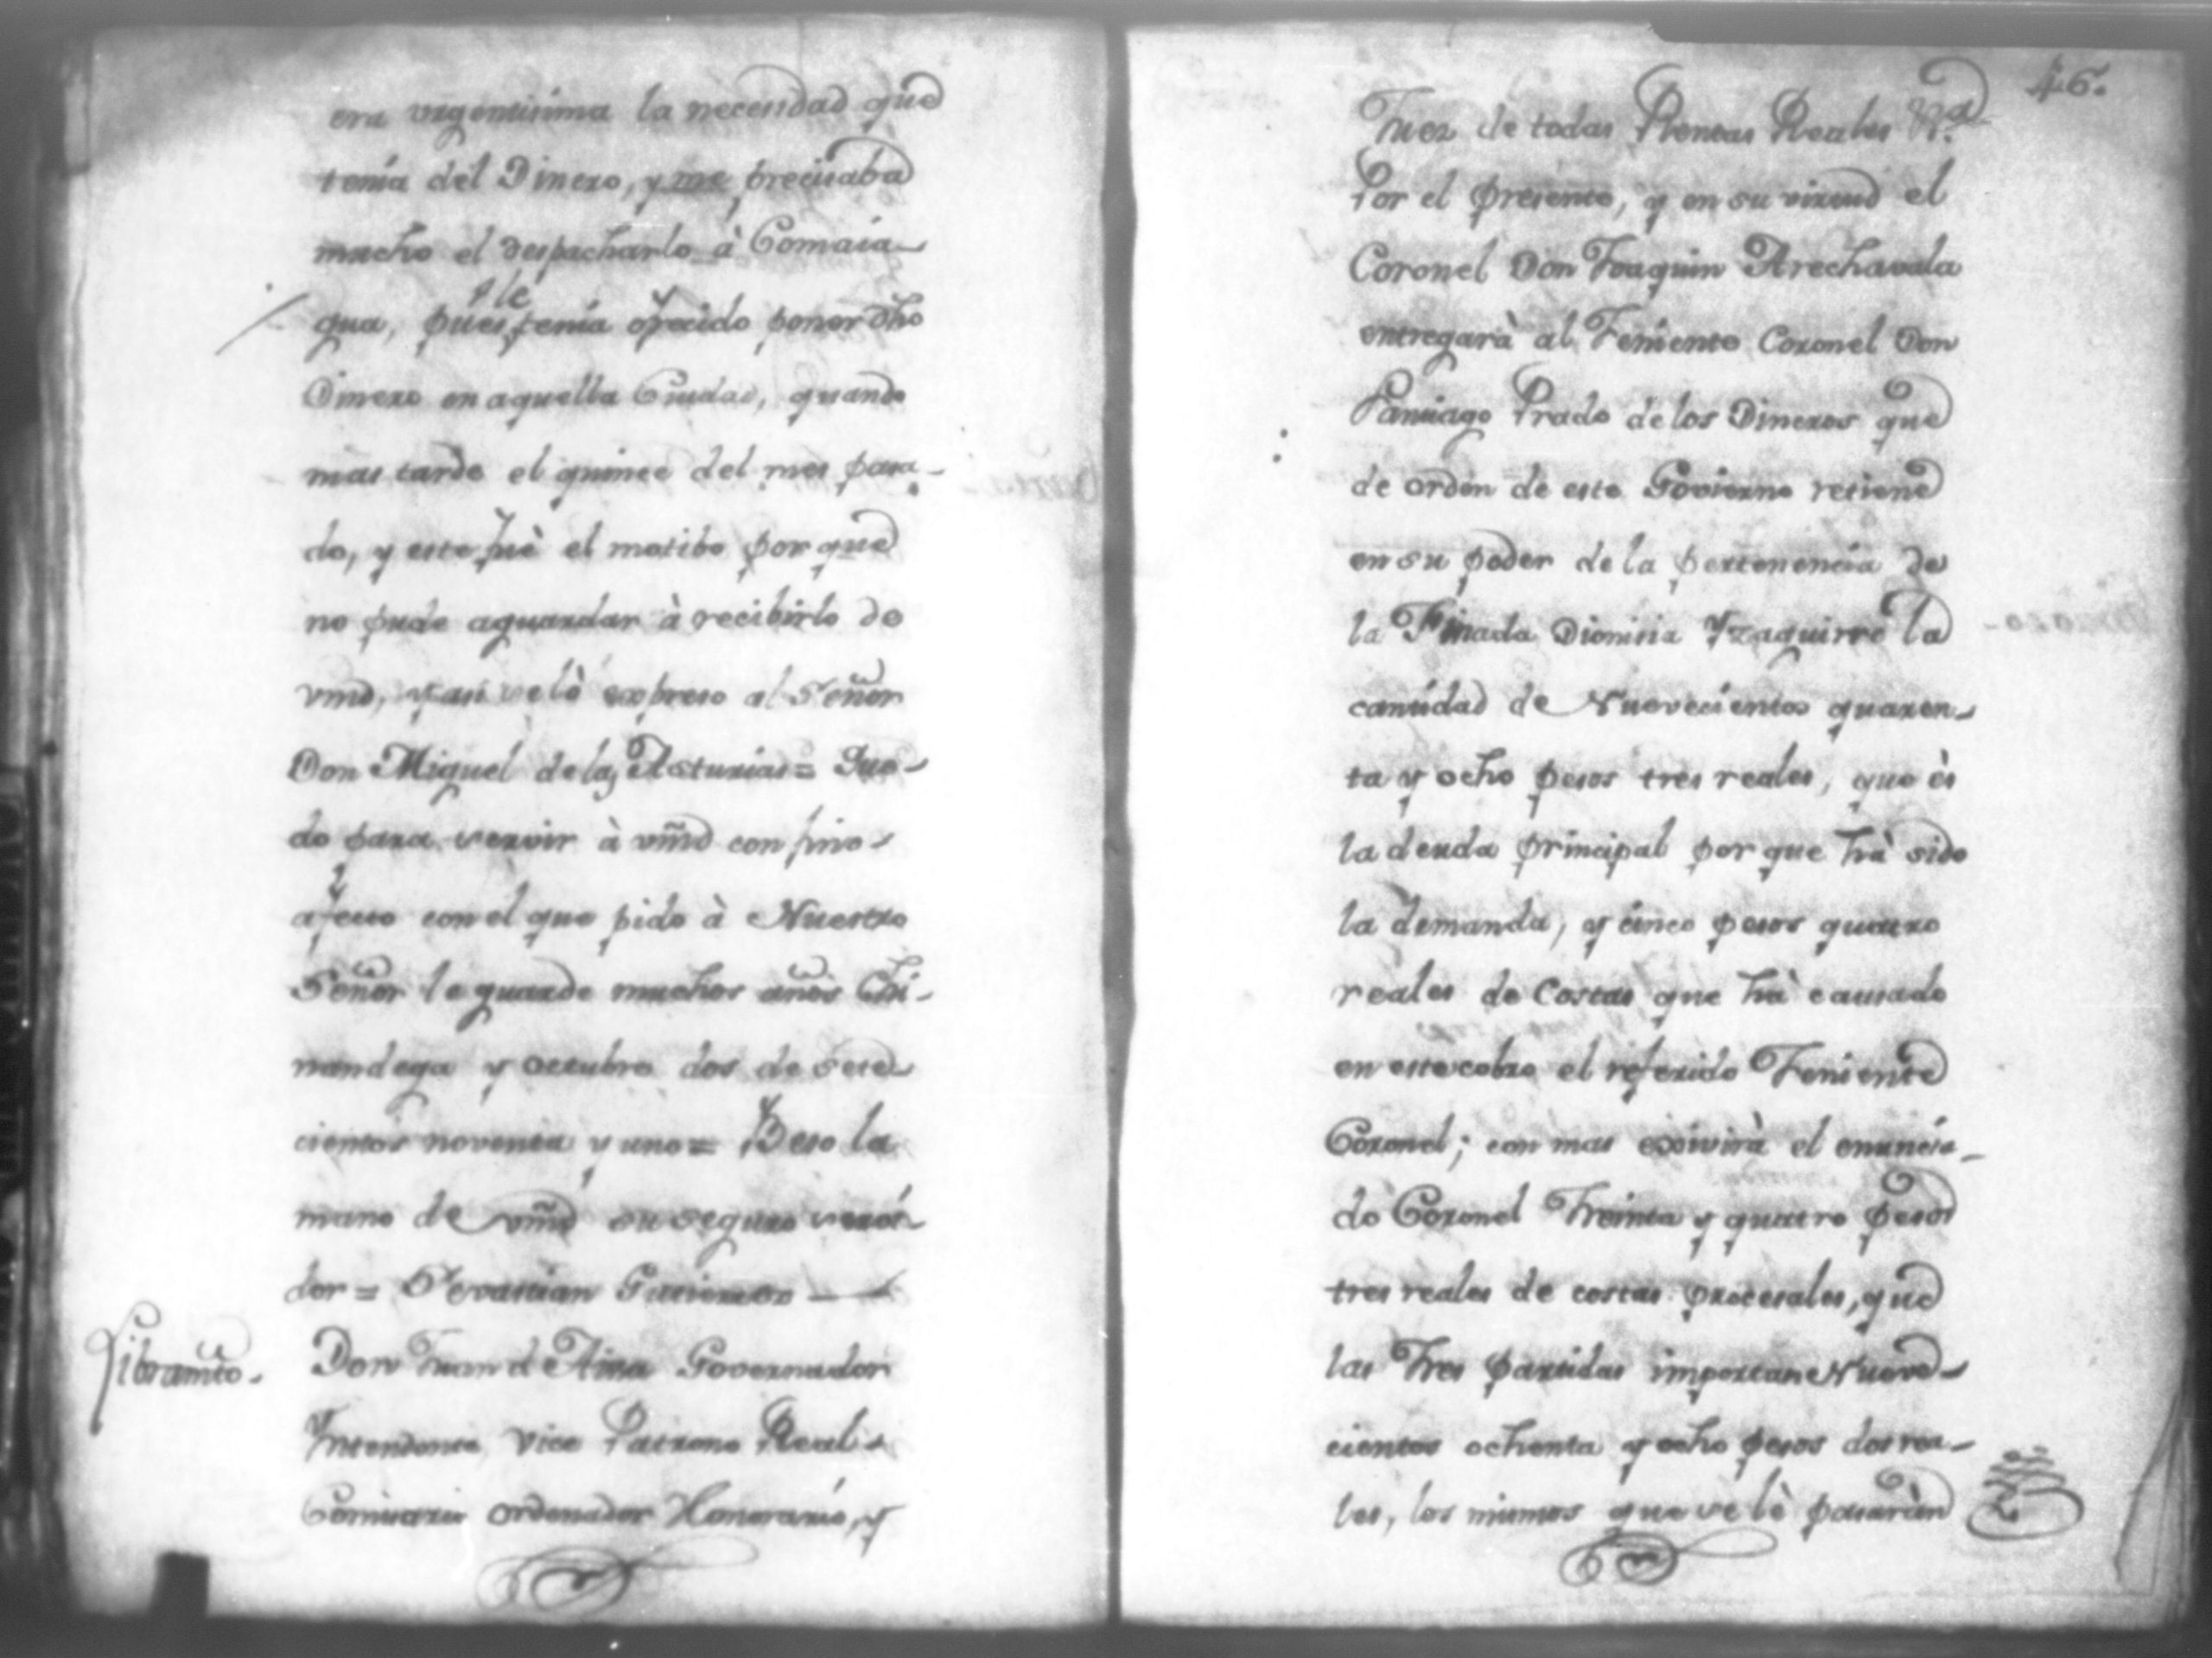 era urgentisima la necesidad que
tenia del Dinero, y me precisaba
mucho el despacharlo à Comaia-
le
gua, pues tenia ofrecido poner dho
Dinero en aquella Ciudad, quando
mas tarde el quince del mes pasa-
do, y este fuè el motibo por que
no pude aguardar à recibirlo de
vmd, y asi se lò expreso al Señor
Don Miguel de las Asturias = Que-
do para servir à vm̃d con fino
afecto con el que pido à Nuestro
Señor le guarde muchos años Chi-
nandega y octubre dos de sete-
cientos noventa y uno = Beso la
mano de vm̃d su seguro servi-
dor = Sevastian Gutierrez
Libramto. Don Juan de Aisa Governador
Intendente Vice Patrono Real
Comisario ordenador Honorario, y
46.
Juez de todas Rentas Reales &a.
Por el presente, y en su virtud el
Coronel Don Joaquin Arechavala
entregarà al Teniente Coronel Don
Santiago Prado de los Dineros que
de orden de este Govierno retiene
en su poder de la pertenencia de
la Finada Dionisia Yzaguirre la
cantidad de Nuevecientos quaren-
ta y ocho pesos tres reales, que ès
la deuda principal por que hà sido
la demanda, y cinco pesos quatro
reales de Costas que hà causado
en este cobro el referido Teniente
Coronel; con mas exivirà el enuncia-
do Coronel Treinta y quatro pesos
tres reales de costas procesales, que
las Tres partidas importan Nueve-
cientos ochenta y ocho pesos dos rea-
les, los mismos que se lè pasaràn